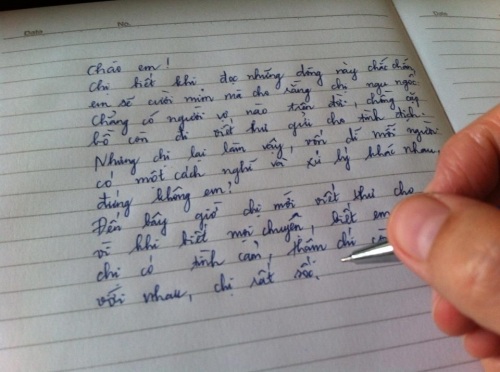 Date No.
Date
Chào em!
Chị biết khi đọc những dòng này chắc chắn
em sẽ cười mỉm mà cho rằng chị ngu ngốc
Chẳng có người vợ nào trên đời, chồng cặp
bồ còn đi viết thư gửi cho tình địch.
Nhưng chị lại làm vậy, vốn dĩ mỗi người
có một cách nghĩ và xử lý khác nhau,
đúng không em?
Đến bây giờ chị mới viết thư cho
vì khi biết mọi chuyện, biết em
chị có tình cảm, thậm chí
với nhau, chị rất sốc.